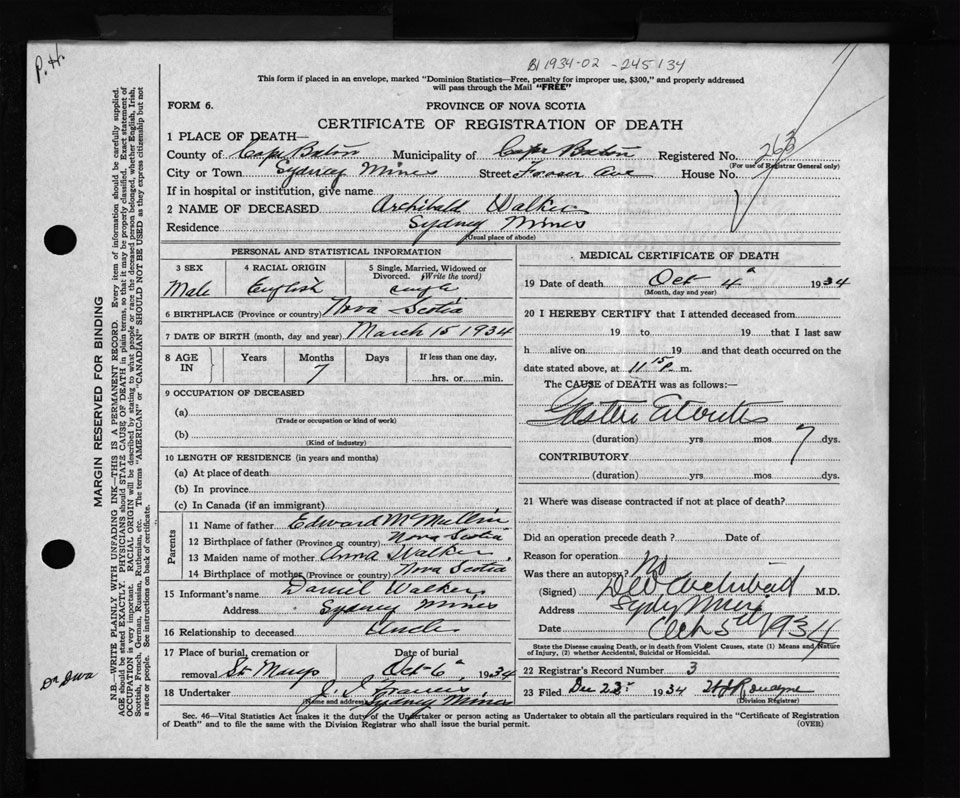 P.H.
B1 1934-02-245134
This form if placed in an envelope, marked "Dominion Statistics—Free, penalty for improper use, $300," and properly addressed
will pass through the Mail "FREE"
FORM 6. PROVINCE OF NOVA SCOTIA
CERTIFICATE OF REGISTRATION OF DEATH
1 PLACE OF DEATH—
County of Cape Breton Municipality of Cape Breton Registered No. 263
(For use of Registrar General only)
City or Town Sydney Mines Street Fraser Ave House No.
If in hospital or institution, give name
2 NAME OF DECEASED Archibald Walker
Residence Sydney Mines
(Usual place of abode)
PERSONAL AND STATISTICAL INFORMATION
3 SEX 4 RACIAL ORIGIN 5 Single, Married, Widowed or Divorced. (Write the word)
Male English single
6 BIRTHPLACE (Province or country) Nova Scotia
7 DATE OF BIRTH (month, day and year) March 15 1934
8 AGE IN Years Months Days If less than one day,
7 hrs. or min.
9 OCCUPATION OF DECEASED
(a)
(Trade or occupation or kind of work)
(b)
(Kind of industry)
10 LENGTH OF RESIDENCE (in years and months)
(a) At place of death
(b) In province
(c) In Canada (if an immigrant)
Parents
11 Name of father Edward McMullin
12 Birthplace of father (Province or country) Nova Scotia
13 Maiden name of mother Anna Walker
14 Birthplace of mother (Province or country) Nova Scotia
15 Informant's name Daniel Walker
Address Sydney Mines
16 Relationship to deceased Uncle
17 Place of burial, cremation or Date of burial
removal Oct 6 1934
18 Undertaker J. J. Francis
(Name and address) Sydney Mines
MEDICAL CERTIFICATE OF DEATH
19 Date of death Oct 4 1934
(Month, day and year)
20 I HEREBY CERTIFY that I attended deceased from
19 to 19 that I last saw
h alive on 19 and that death occurred on the
date stated above, at 11 15 P. m.
The CAUSE of DEATH was as follows:—
Gastro
(duration) yrs mos 7 dys.
CONTRIBUTORY
(duration) yrs. mos dys.
21 Where was disease contracted if not at place of death?
Did an operation precede death? Date of
Reason for operation
Was there an autopsy? No
(Signed) Archibald M.D.
Address Sydney Mines
Date Oct 5th 1934
State the Disease causing Death, or in death from Violent Causes, state (1) Means and Nature
of Injury, (2) whether Accidental, Suicidal or Homicidal.
22 Registrar's Record Number 3
23 Filed Dec 1934
(Division Registrar)
Sec. 46—Vital Statistics Act makes it the duty of the Undertaker or person acting as Undertaker to obtain all the particulars required in the "Certificate of Registration
of Death" and to file the same with the Division Registrar who shall issue the burial permit. (OVER)
MARGIN RESERVED FOR BINDING
N.B.—WRITE PLAINLY WITH UNFADING INK—THIS IS A PERMANENT RECORD. Every item of information should be carefully supplied.
AGE should be stated EXACTLY. PHYSICIANS should STATE CAUSE OF DEATH in plain terms, so that it may be properly classified. Exact statement of
OCCUPATION is very important. RACIAL ORIGIN will be described by stating to what people or race the deceased person belonged, whether English, Irish,
Scottish, French, German, Russian, Ruthenian, etc. The terms "AMERICAN" or "CANADIAN" SHOULD NOT BE USED as they express citizenship but not
a race or people. See instructions on back of certificate.